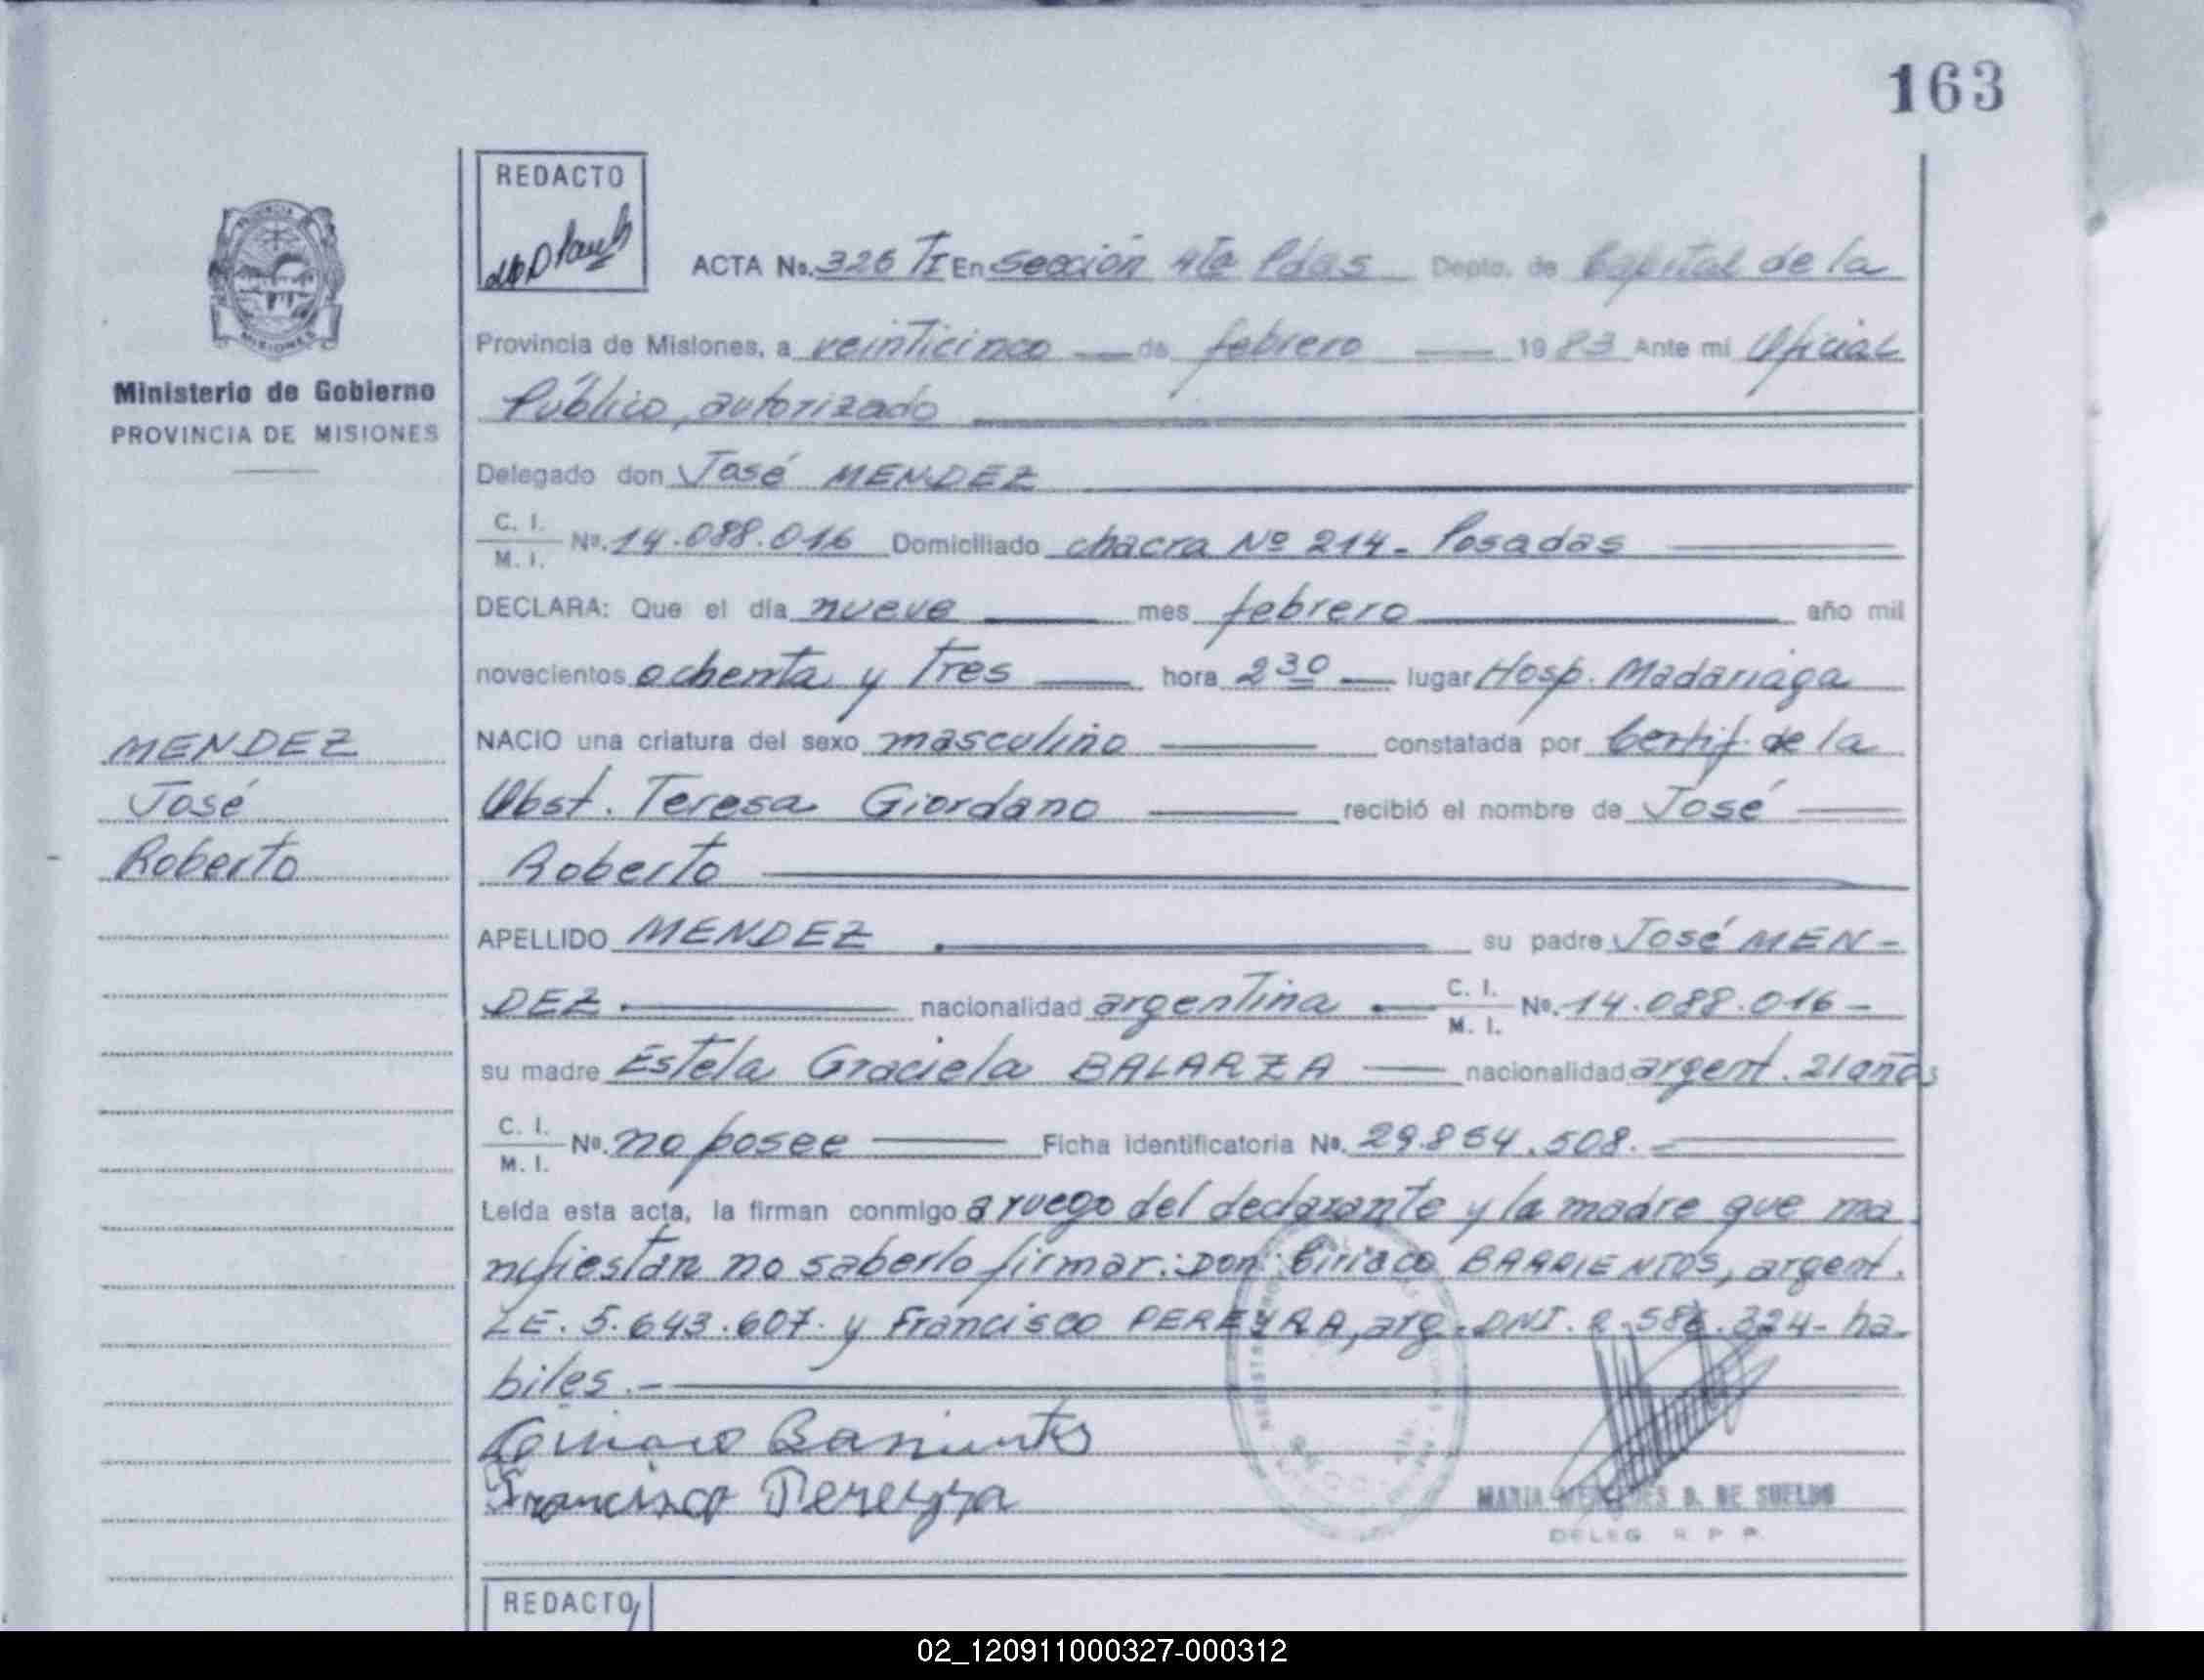 163
REDACTO
ACTA No. 326 TI En Sección 4ta Pdas Depto. de Capital de la
Provincia de Misiones, a veinticinco de febrero 1983 Ante mi Oficial
Público, autorizado
Ministerio de Gobierno
PROVINCIA DE MISIONES
Delegado don José MENDEZ
C. I. M. I. No. 14.088.016 Domiciliado chacra Nº 214. Posadas
DECLARA: Que el día nueve mes febrero año mil
novecientos ochenta y tres hora 2 30 lugar Hosp. Madariaga
NACIO una criatura del sexo masculino constatada por Certif. de la
Obst. Teresa Giordano recibió el nombre de José
Roberto
MENDEZ
José
Roberto
APELLIDO MENDEZ su padre José MEN-
DEZ nacionalidad argentina C. I. M. I. No. 14.088.016-
su madre Estela Graciela BALARZA nacionalidad argent. 21 años
C. I. M. I. No. no posee Ficha identificatoria No. 29.854.508.-
Leída esta acta, la firman conmigo a ruego del declarante y la madre que ma
nifiestan no saberlo firmar: Don: Ciriaco BARRIENTOS, argent.
LE. 5.643.607. y Francisco PEREYRA, arg. DNI. 324- ha-
biles.-
Ciriaco Barrientos
Francisco Pereyra
MARIA MERCEDES D. DE SUELDO
DELEG R P P
REDACTO
02_120911000327-000312